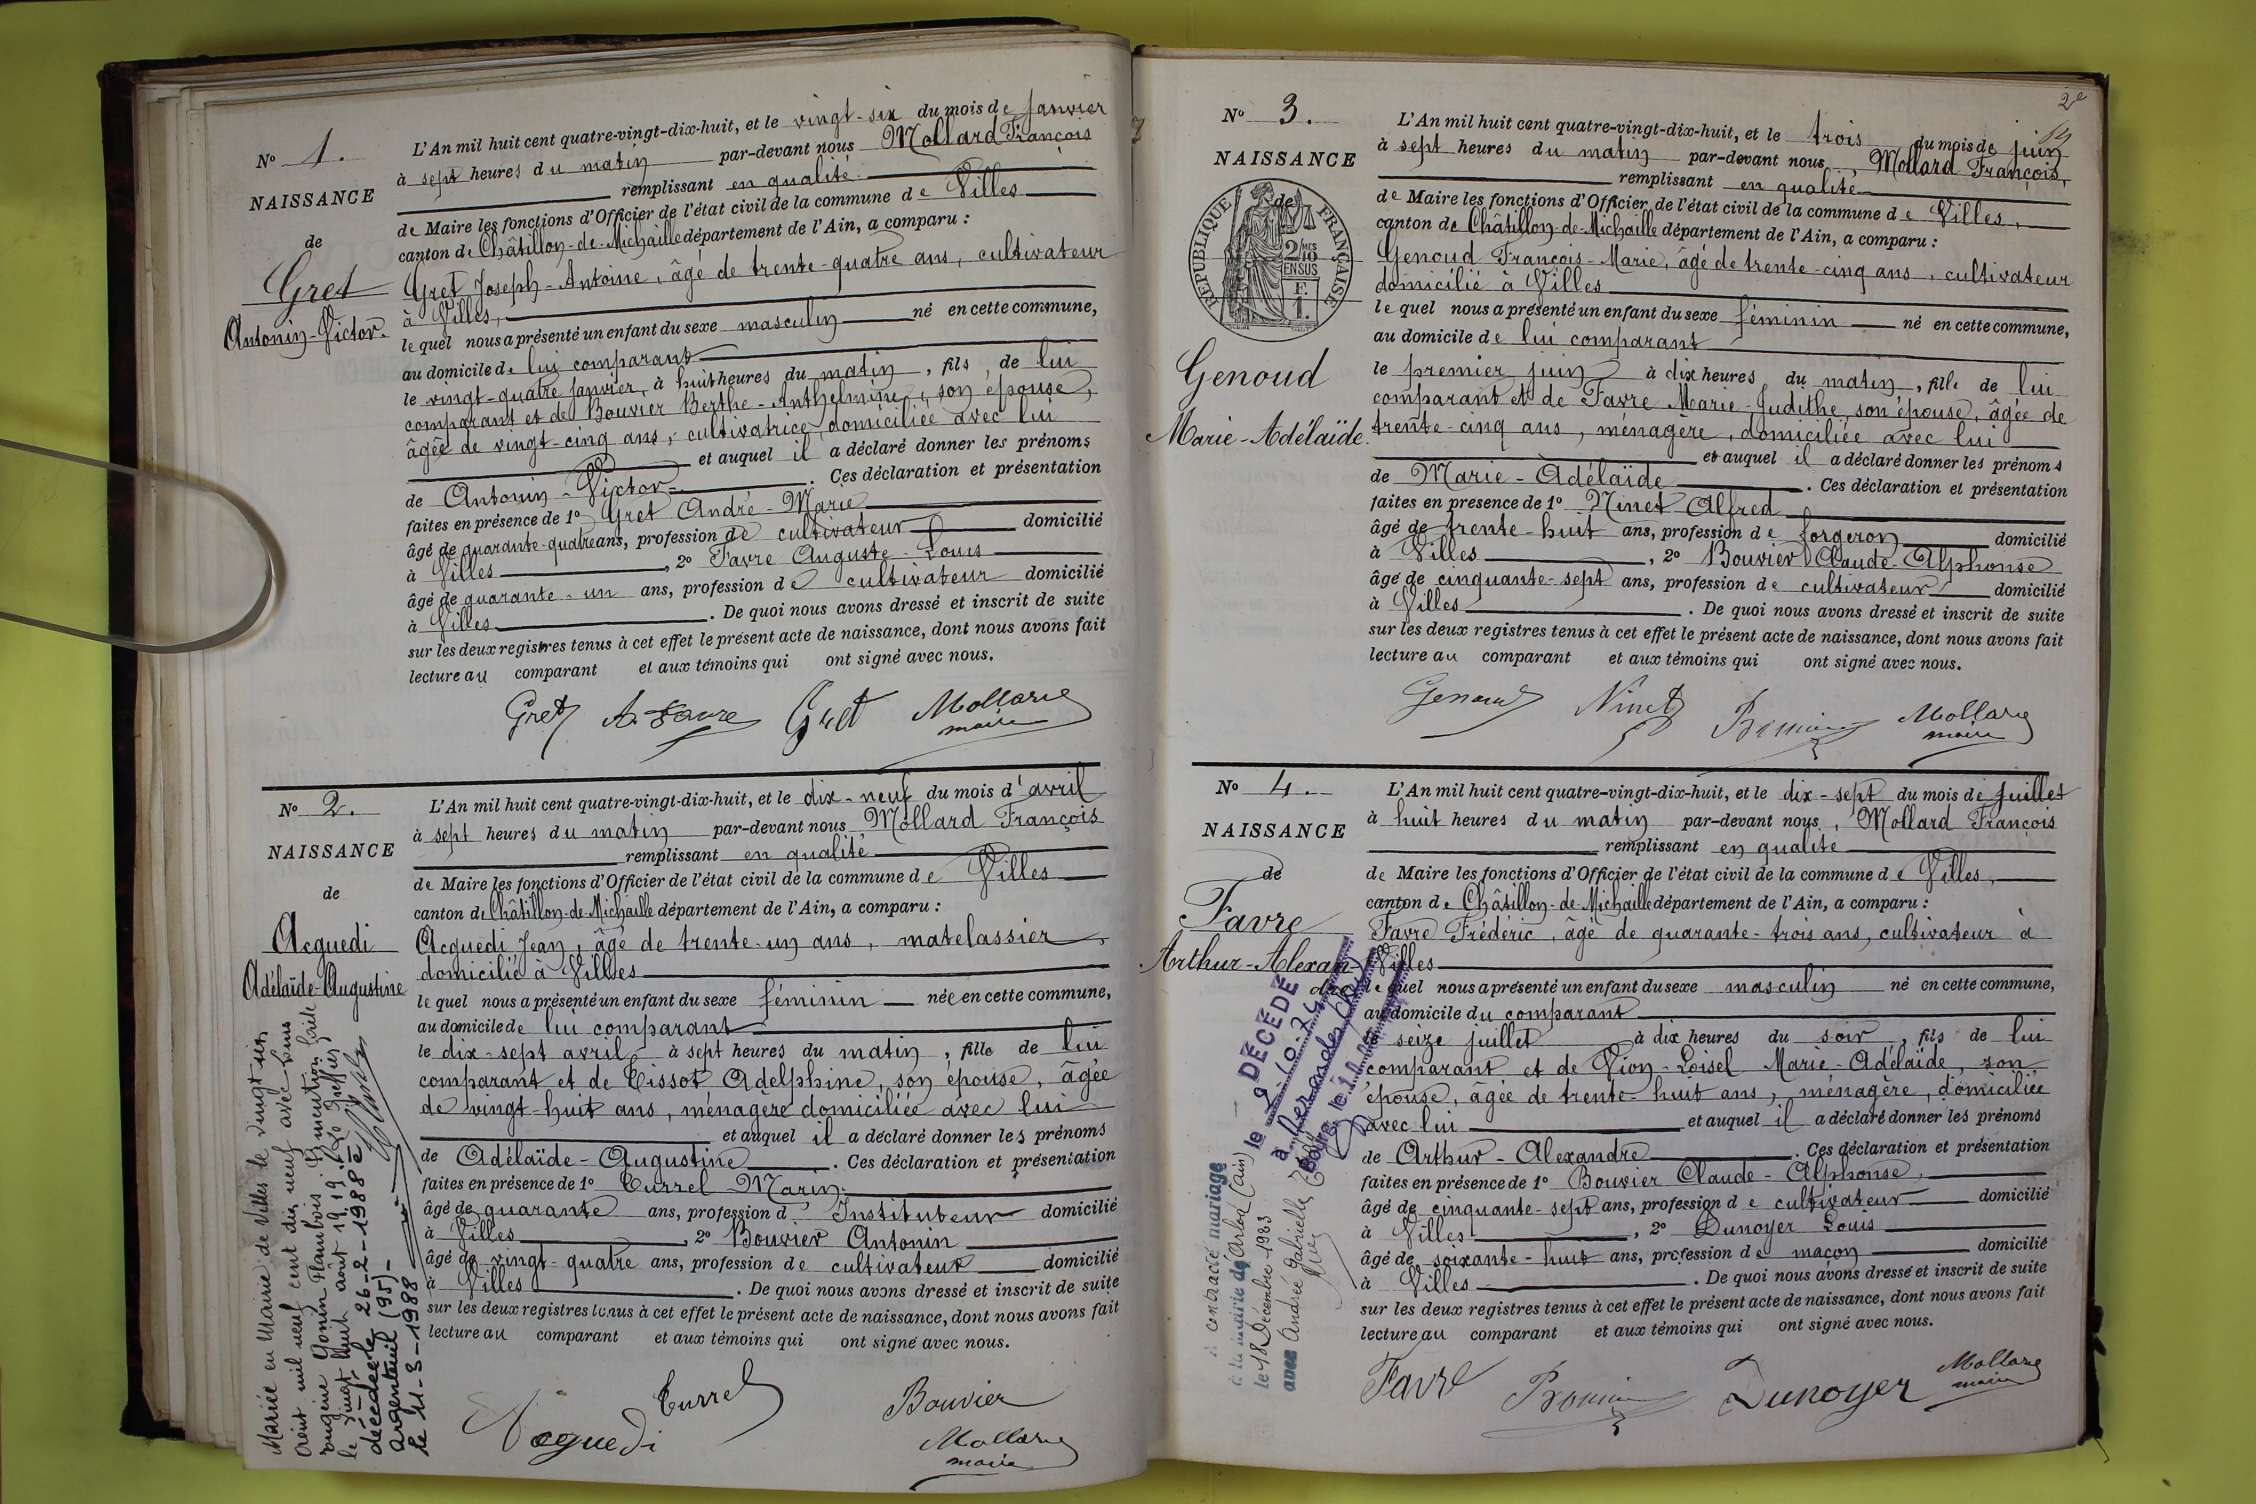 Nº 1.
NAISSANCE
de
Gret
Antonin-Victor.
L'An mil huit cent quatre-vingt-dix-huit, et le vingt-six du mois de janvier
à sept heures du matin par-devant nous Mollard François
remplissant en qualité
de Maire les fonctions d'Officier de l'état civil de la commune de Villes
canton de Châtillon-de-Michaille département de l'Ain, a comparu :
Gret Joseph-Antoine, âgé de trente-quatre ans, cultivateur
à Villes,
le quel nous a présenté un enfant du sexe masculin né en cette commune,
au domicile de lui comparant
le vingt-quatre janvier, à huit heures du matin, fils de lui
comparant et de Bouvier Berthe-Anthelmine, son épouse,
âgée de vingt-cinq ans, cultivatrice, domiciliée avec lui
et auquel il a déclaré donner les prénoms
de Antonin-Victor. Ces déclaration et présentation
faites en présence de 1º Gret André-Marie
âgé de quarante-quatre ans, profession de cultivateur domicilié
à Villes, 2º Favre Auguste-Louis
âgé de quarante-un ans, profession de cultivateur domicilié
à Villes. De quoi nous avons dressé et inscrit de suite
sur les deux registres tenus à cet effet le présent acte de naissance, dont nous avons fait
lecture au comparant et aux témoins qui ont signé avec nous.
Gret A. Favre Gret Mollard
maire
Nº 2.
NAISSANCE
de
Acquedi
Adélaïde-Augustine
L'An mil huit cent quatre-vingt-dix-huit, et le dix-neuf du mois d'avril
à sept heures du matin par-devant nous Mollard François
remplissant en qualité
de Maire les fonctions d'Officier de l'état civil de la commune de Villes
canton de Châtillon-de-Michaille département de l'Ain, a comparu :
Acquedi Jean, âgé de trente-un ans, matelassier,
domicilié à Villes
le quel nous a présenté un enfant du sexe féminin née en cette commune,
au domicile de lui comparant
le dix-sept avril à sept heures du matin, fille de lui
comparant et de Tissot Adelphine, son épouse, âgée
de vingt-huit ans, ménagère domiciliée avec lui
et auquel il a déclaré donner les prénoms
de Adélaïde-Augustine. Ces déclaration et présentation
faites en présence de 1º Turrel Marin
âgé de quarante ans, profession d. Instituteur domicilié
à Villes, 2º Bouvier Antonin
âgé de vingt-quatre ans, profession de cultivateur domicilié
à Villes. De quoi nous avons dressé et inscrit de suite
sur les deux registres tenus à cet effet le présent acte de naissance, dont nous avons fait
lecture au comparant et aux témoins qui ont signé avec nous.
Acquedi Turrel Bouvier
Mollard
maire
Mariée en Mairie de Villes le vingt six
Août mil neuf cent dix neuf avec
Gonin . Mention faite
le vingt huit août 1919. Le Greffier
décédée le 26-2-1988 à
Argenteuil (95)-
le 11-3-1988
2e
Nº 3.
NAISSANCE
de
RÉPUBLIQUE FRANÇAISE
2/10 EN SUS
F.
1.
Genoud
Marie-Adélaïde.
L'An mil huit cent quatre-vingt-dix-huit, et le trois du mois de juin
à sept heures du matin par-devant nous, Mollard François,
remplissant en qualité
de Maire les fonctions d'Officier de l'état civil de la commune de Villes,
canton de Châtillon-de-Michaille département de l'Ain, a comparu :
Genoud François-Marie, âgé de trente-cinq ans, cultivateur
domicilié à Villes
le quel nous a présenté un enfant du sexe féminin né en cette commune,
au domicile de lui comparant
le premier juin à dix heures du matin, fille de lui
comparant et de Favre Marie-Judithe, son épouse, âgée de
trente-cinq ans, ménagère, domiciliée avec lui
et auquel il a déclaré donner les prénoms
de Marie-Adélaïde. Ces déclaration et présentation
faites en presence de 1º Ninet Alfred
âgé de trente-huit ans, profession de forgeron domicilié
à Villes, 2º Bouvier Claude-Alphonse
âgé de cinquante-sept ans, profession de cultivateur domicilié
à Villes. De quoi nous avons dressé et inscrit de suite
sur les deux registres tenus à cet effet le présent acte de naissance, dont nous avons fait
lecture au comparant et aux témoins qui ont signé avec nous.
Genoud Ninet Bouvier Mollard
maire
Nº 4.
NAISSANCE
de
Favre
Arthur-Alexan-
dre
L'An mil huit cent quatre-vingt-dix-huit, et le dix-sept du mois de juillet
à huit heures du matin par-devant nous, Mollard François
remplissant en qualité
de Maire les fonctions d'Officier de l'état civil de la commune de Villes,
canton de Châtillon-de-Michaille département de l'Ain, a comparu :
Favre Frédéric, âgé de quarante-trois ans, cultivateur à
Villes
le quel nous a présenté un enfant du sexe masculin né en cette commune,
au domicile du comparant
le seize juillet à dix heures du soir, fils de lui
comparant et de Vion-Loisel Marie-Adélaïde, son
épouse, âgée de trente-huit ans, ménagère, domiciliée
avec lui et auquel il a déclaré donner les prénoms
de Arthur-Alexandre. Ces déclaration et présentation
faites en présence de 1º Bouvier Claude-Alphonse,
âgé de cinquante-sept ans, profession de cultivateur domicilié
à Villes, 2º Dunoyer Louis
âgé de soixante-huit ans, profession de maçon domicilié
à Villes. De quoi nous avons dressé et inscrit de suite
sur les deux registres tenus à cet effet le présent acte de naissance, dont nous avons fait
lecture au comparant et aux témoins qui ont signé avec nous.
Favre Bouvier Dunoyer Mollard
maire
DÉCÉDÉ
le 9-10-74
A contracté mariage
à la mairie de Arlod (Ain)
le 18 Décembre 1923
avec Andrée Gabrielle